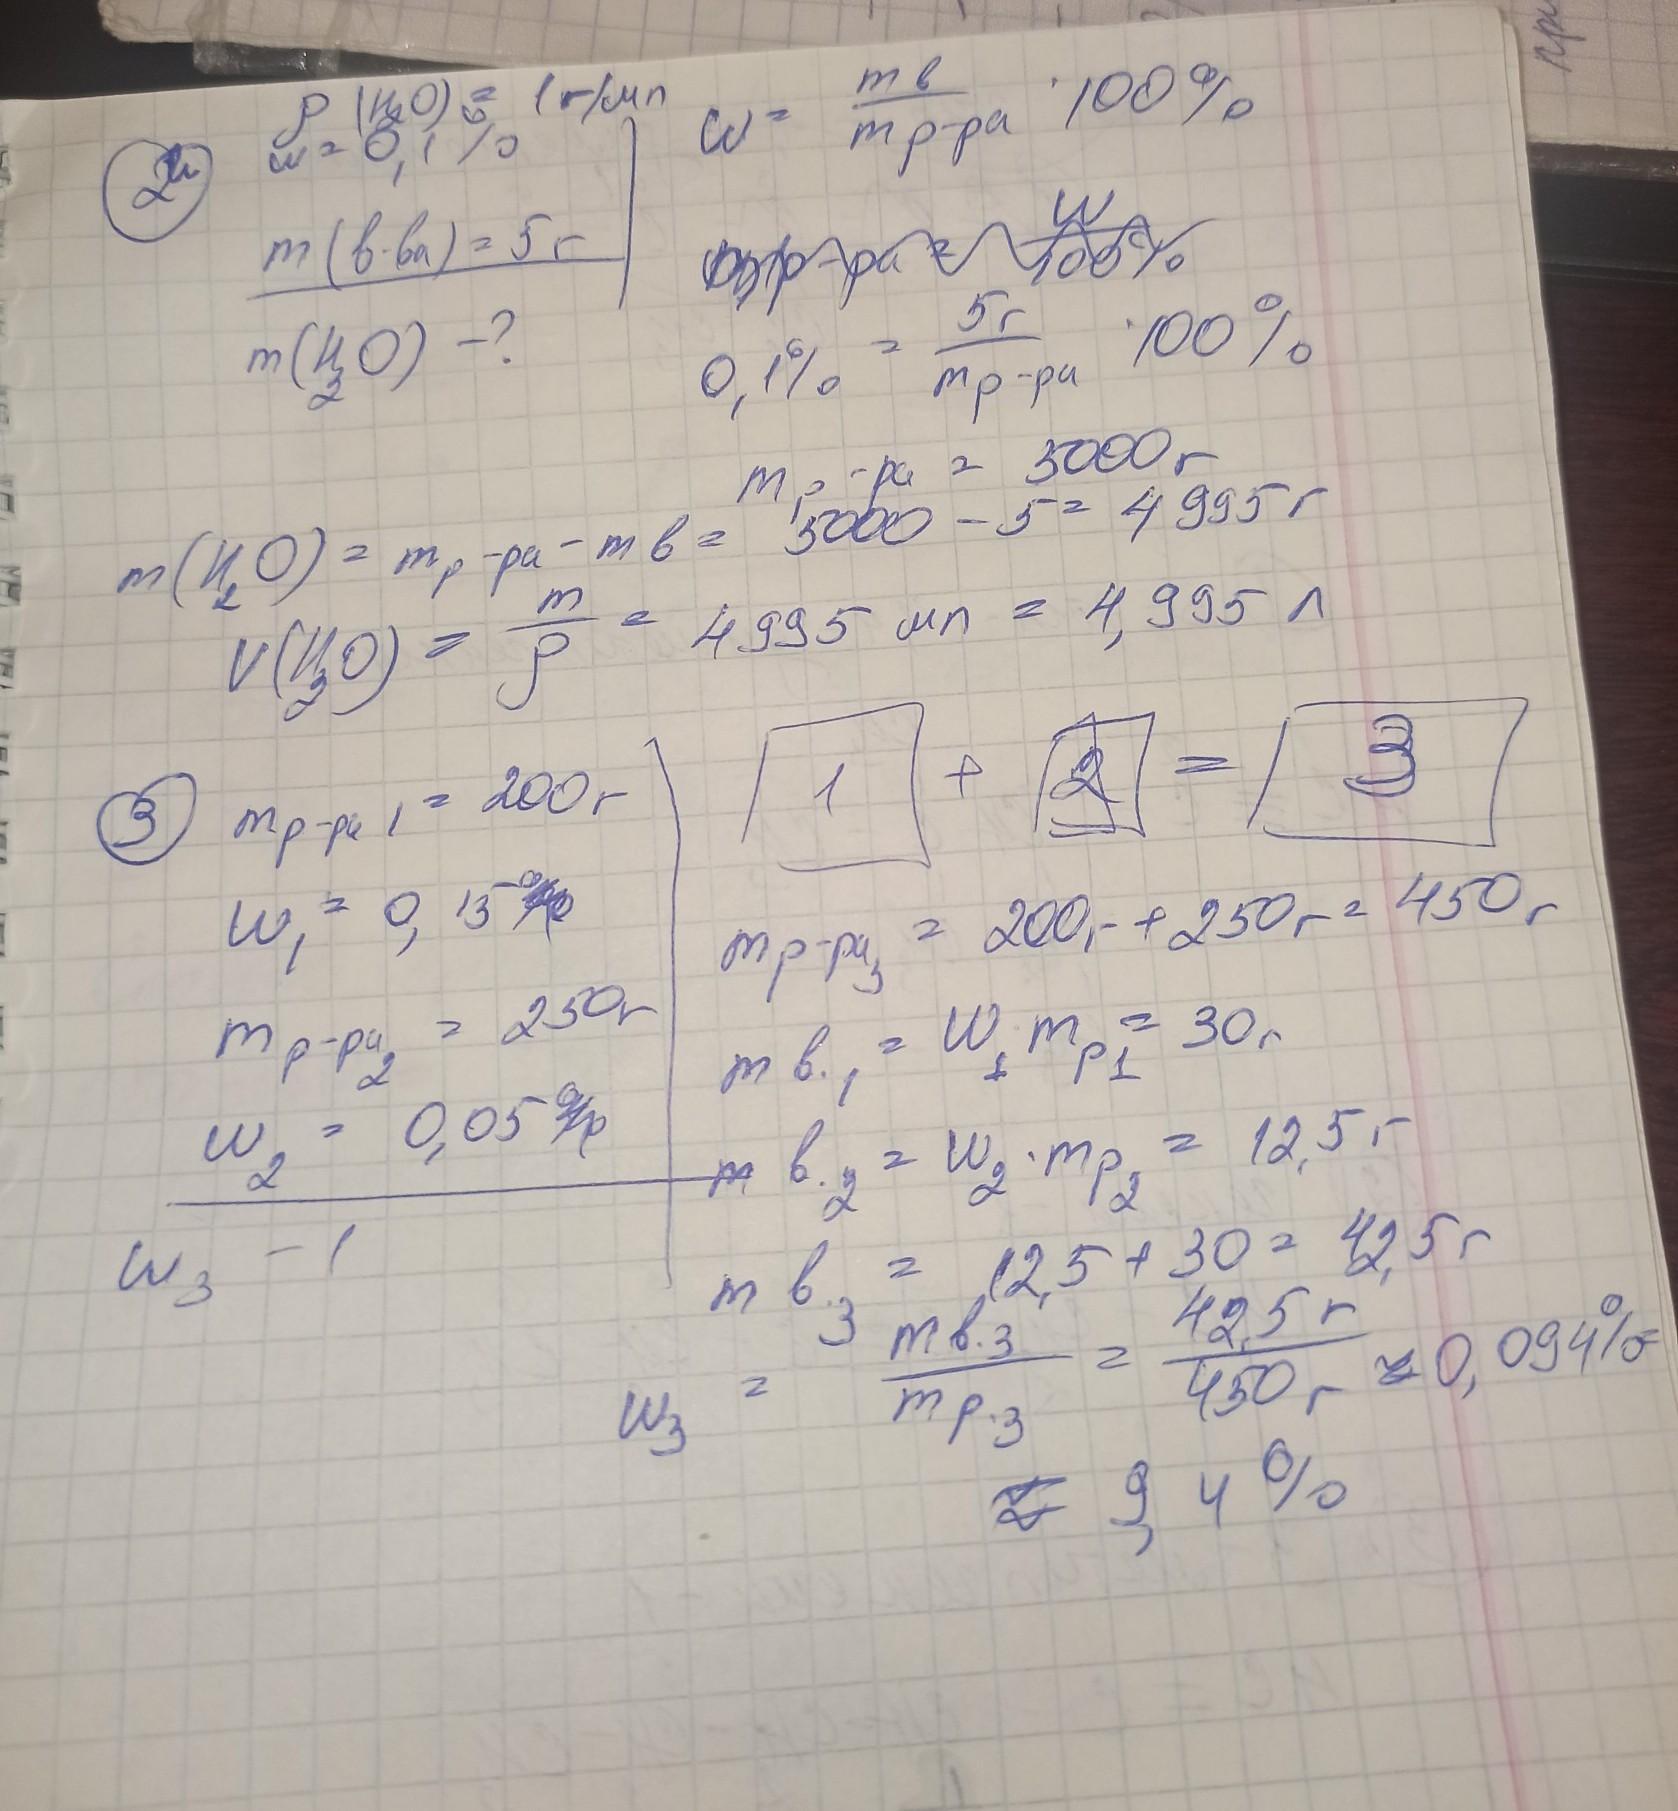 ρ (H₂O) = 1 г/мл
② ω = 0,1 %
m (в-ва) = 5 г
m (H₂O) - ?
ω = mв / mр-ра · 100%
0,1% = 5г / mр-ра · 100%
mр-ра = 5000 г
m (H₂O) = mр-ра - mв = 5000 - 5 = 4995 г
V (H₂O) = m / ρ = 4995 мл = 4,995 л
③ mр-ра 1 = 200 г
ω₁ = 0,15
mр-ра₂ = 250 г
ω₂ = 0,05
ω₃ - 1
1 + 2 = 3
mр-ра₃ = 200г + 250г = 450г
m в.₁ = ω₁ mр1 = 30г
m в.₂ = ω₂ · mр₂ = 12,5 г
m в.₃ = 12,5 + 30 = 42,5 г
ω₃ = mв.₃ / mр.₃ = 42,5 г / 450 г ≈ 0,094%
≈ 9,4 %